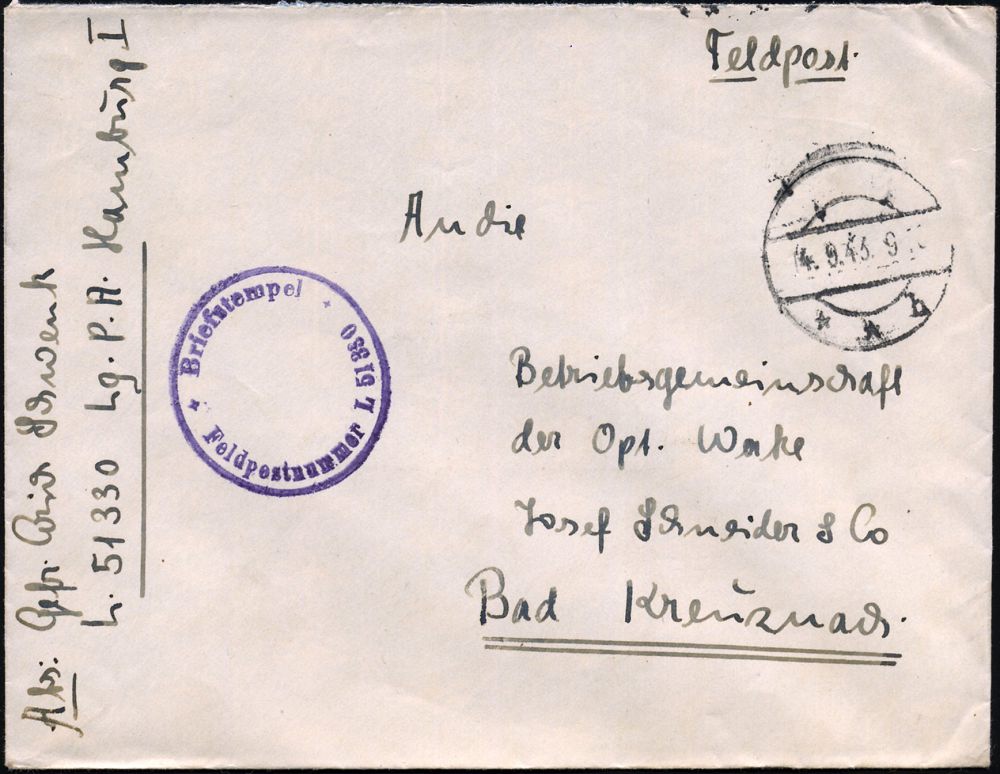 Feldpost.
An die
Betriebsgemeinschaft
der Opt. Werke
Josef Schneider & Co
Bad Kreuznach.
Abs: Gefr. Schwenk
L. 51330 Lg. P. A. Hamburg I
* Briefstempel *
Feldpostnummer L 51330
4. 9. 43. 9
b